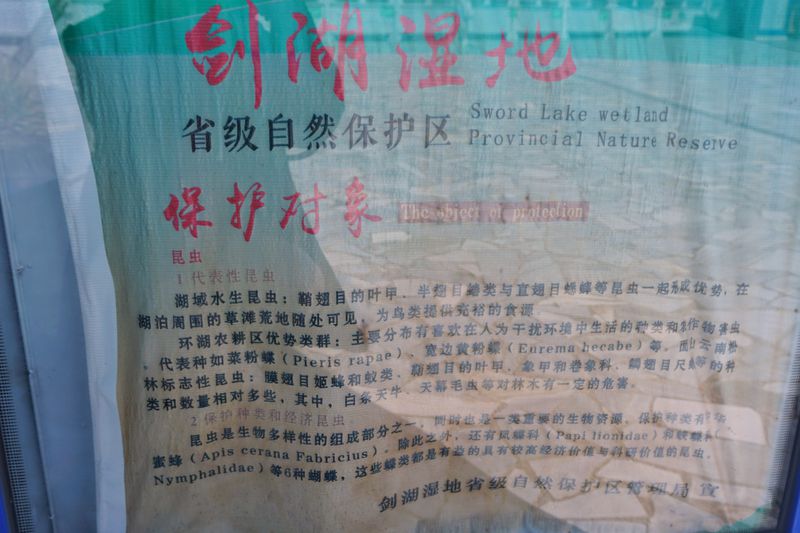 剑湖湿地
省级自然保护区
Sword Lake wetland
Provincial Nature Reserve
保护对象 The object of protection
昆虫
1 代表性昆虫
湖域水生昆虫：鞘翅目的叶甲、半翅目蝽类与直翅目蟋蟀等昆虫一起形成优势，在
湖泊周围的草滩荒地随处可见，为鸟类提供充裕的食源。
环湖农耕区优势类群：主要分布有喜欢在人为干扰环境中生活的种类和农作物害虫
，代表种如菜粉蝶（Pieris rapae）、宽边黄粉蝶（Eurema hecabe）等。面山云南松
林标志性昆虫：膜翅目姬蜂和蚁类、鞘翅目的叶甲、象甲和卷象科、鳞翅目尺蛾等的种
类和数量相对多些，其中，白条天牛、天幕毛虫等对林木有一定的危害。
2 保护种类和经济昆虫
昆虫是生物多样性的组成部分之一，同时也是一类重要的生物资源。保护种类有
蜜蜂（Apis cerana Fabricius）。除此之外，还有凤蝶科（Papilionidae）和蛱蝶科
Nymphalidae）等6种蝴蝶，这些蝶类都是有益的具有较高经济价值与科研价值的昆虫。
剑湖湿地省级自然保护区管理局 宣